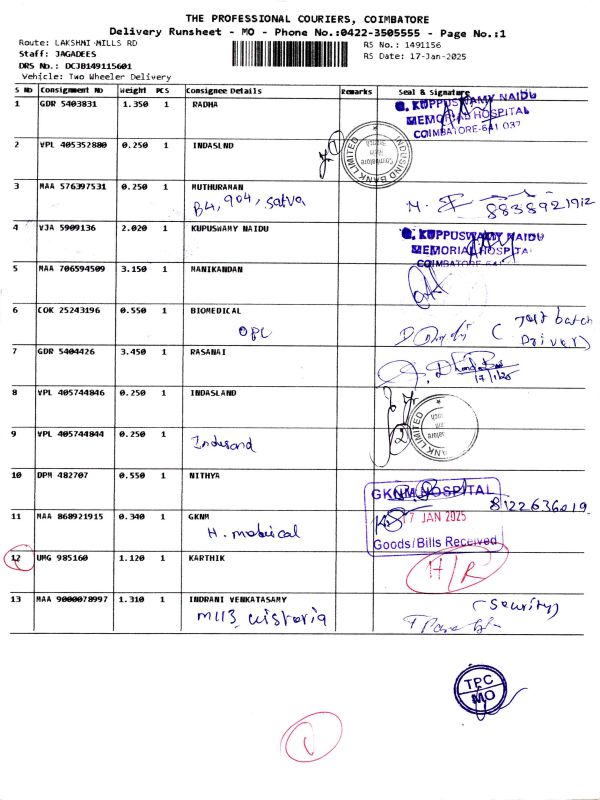 THE PROFESSIONAL COURIERS, COIMBATORE
Delivery Runsheet - MO - Phone No.:0422-3505555 - Page No.:1
Route: LAKSHMI-MILLS RD
Staff: JAGADEES
DRS No.: DCJB149115601
Vehicle: Two Wheeler Delivery
RS No.: 1491156
RS Date: 17-Jan-2025
S No Consignment No Weight PCS Consignee Details Remarks Seal & Signature
1 GDR 5403831 1.350 1 RADHA
G. KUPPUSWAMY NAIDU
MEMORIAL HOSPITAL
COIMBATORE-641 037
2 VPL 405352880 0.250 1 INDASLND
INDUSIND BANK LIMITED
3 MAA 576397531 0.250 1 MUTHURAMAN
B4, 904, satva
8838921912
4 VJA 5909136 2.020 1 KUPUSWAMY NAIDU
G. KUPPUSWAMY NAIDU
MEMORIAL HOSPITAL
COIMBATORE-641
5 MAA 706594509 3.150 1 MANIKANDAN
6 COK 25243196 0.550 1 BIOMEDICAL
OPL
(Test batch
Driver)
7 GDR 5404426 3.450 1 RASANAI
17/1/25
8 VPL 405744846 0.250 1 INDASLAND
9 VPL 405744844 0.250 1 Indusand
BANK LIMITED
10 DPM 482707 0.550 1 NITHYA
GKNM HOSPITAL
8122636019
11 MAA 868921915 0.340 1 GKNM
H. medical
17 JAN 2025
Goods/Bills Received
12 UMG 985160 1.120 1 KARTHIK
H/R
13 MAA 9000078997 1.310 1 INDRANI VENKATASAMY
M113, wistoria
(Security)
TPC
MO